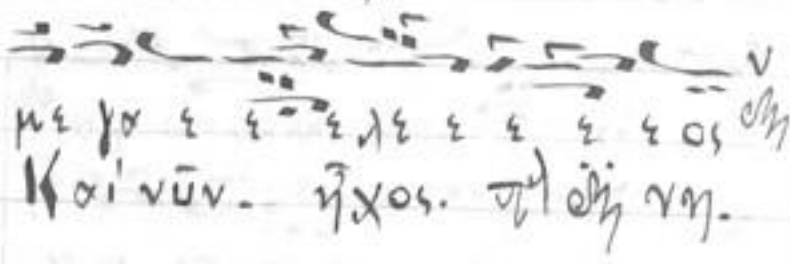 με γα ε ε ε λε ε ε ε ε ος
Καί νῦν. ἦχος. πλ νη.